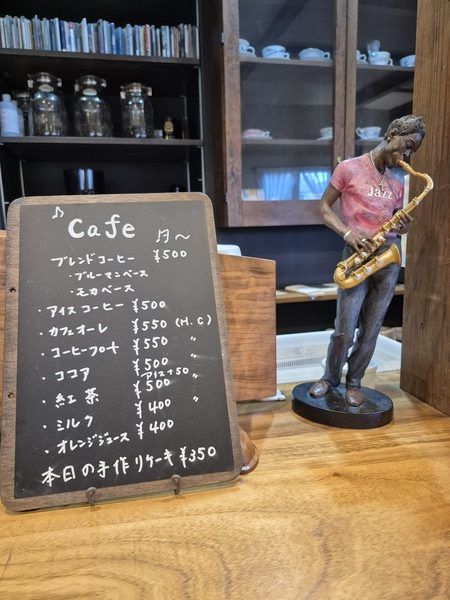 ♪ Cafe
ブレンドコーヒー ¥500
・ブルーマンベース
・モカベース
・アイスコーヒー ¥500
・カフェオーレ ¥550 (H.C)
・コーヒーフロート ¥550 〃
・ココア ¥500 〃
アイス+50
・紅茶 ¥500 〃
・ミルク ¥400 〃
・オレンジジュース ¥400
本日の手作りケーキ ¥350
Jazz